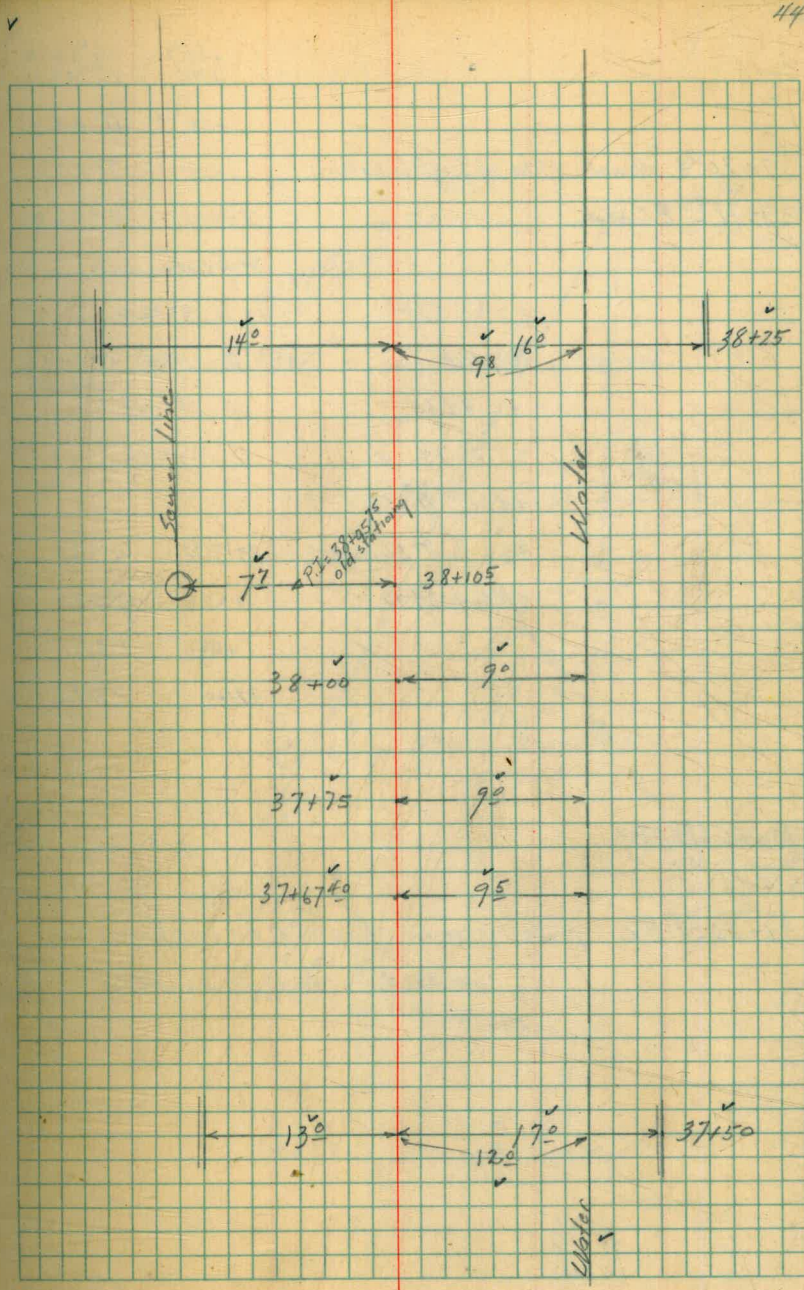 44
14⁰ 9⁸ 16⁰ 38+25
Sewer Line
Water
P.I.=38+05⁷⁵
old stationing
7⁷ 38+10⁵
38+00 9⁰
37+75 9⁰
37+67⁴⁰ 9⁵
13⁰ 12⁰ 17⁰ 37+50
Water